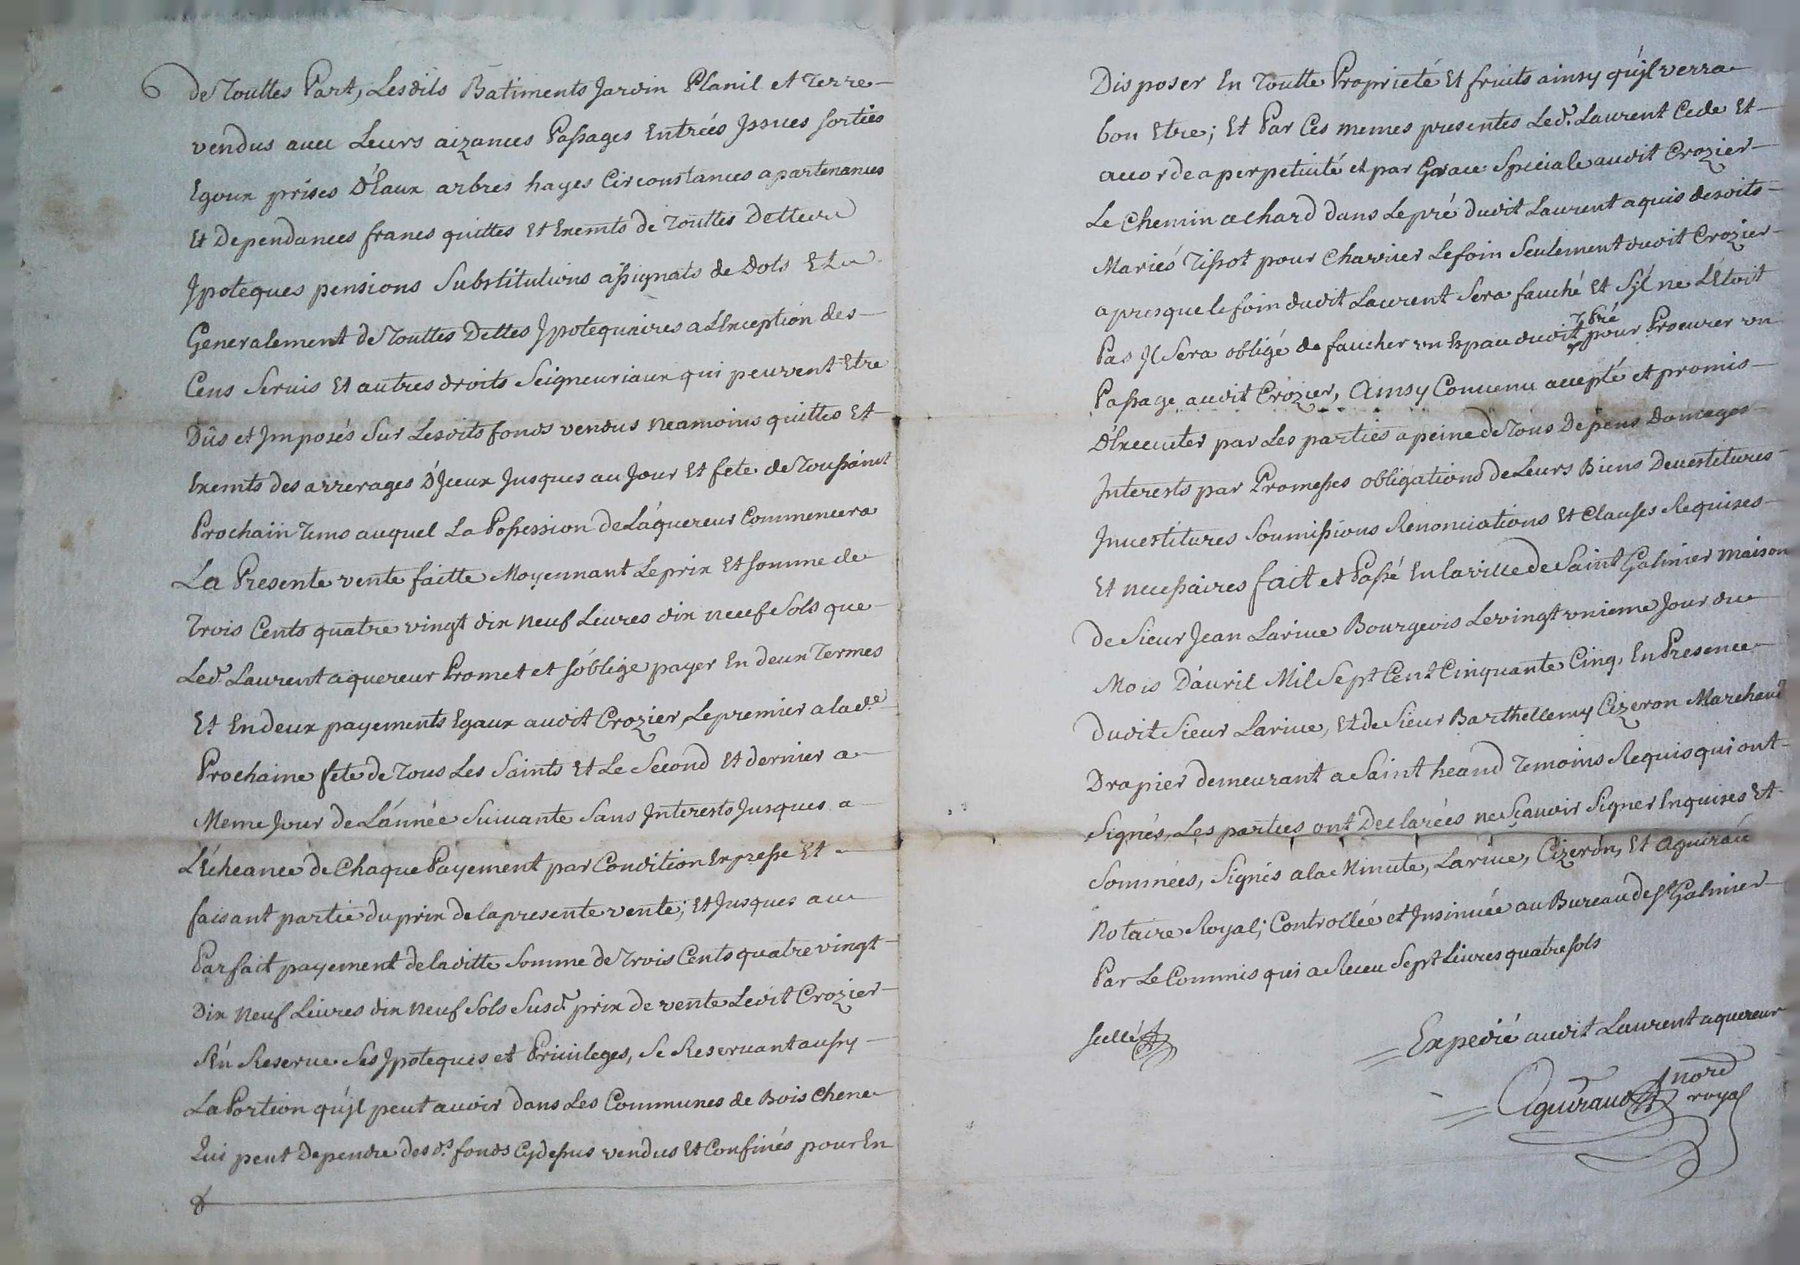 de Touttes Part, Lesdits Batiments Jardin Planil et Terre
vendus avec Leurs aizances Passages Entrées Issues sorties
Egoux prises D'Eaux arbres hayes Circonstances apartenances
Et Dependances francs quittes Et Exemts de Touttes Dettes
Ipoteques pensions Substitutions assignats de Dots Et
Generalement de Touttes Dettes Ipotequaires a L'Exception des
Cens Servis Et autres droits Seigneuriaux qui peuvent Etre
Dûs et Imposés Sur Lesdits fonds vendus neamoins quittes Et
Exemts des arrerages D'Iceux Jusques au Jour Et fete de Toussainct
Prochain Tems auquel La Possession de L'aquereur Commencera
La Presente vente faitte Moyennant Le prix Et somme de
Trois Cents quatre vingt dix neuf Livres dix neuf Sols que
Led. Laurent aquereur Promet et s'oblige payer En deux Termes
Et En deux payements Egaux audit Crozier, Le premier a lad.e
Prochaine fete de Tous Les Saints Et Le Second Et dernier a
Meme Jour de L'année Suivante Sans Interests Jusques a
L'Echeance de Chaque Payement par Condition Expresse Et
faisant partie du prix de la presente vente; Et Jusques au
Parfait payement de laditte Somme de Trois Cents quatre vingt
Dix Neuf Livres dix Neuf Sols Susd. prix de vente Ledit Crozier
S'En Reserve Ses Ipoteques et Privileges, Se Reservant aussy
La Portion qu'jl peut avoir dans Les Communes de Bois Chene
Qui peut Dependre desd.s fonds Cydessus vendus Et Confinés pour En
Disposer En Toutte Proprieté Et fruits ainsy qu'jl verra
bon Etre; Et Par Ces memes presentes Led. Laurent Cede Et
acorde a perpetuité et par Grace Speciale audit Crozier
Le Chemin a Chard dans Le pré dudit Laurent aquis desdits
Mariés Tissot pour Charrier Le foin Seulement dudit Crozier
apres que le foin dudit Laurent Sera fauché Et S'jl ne L'Etoit
Pas Jl Sera obligé de faucher un Espau dudit pré pour Procurer un
Passage audit Crozier, Ainsy Convenu accepté et promis
D'Executer par Les parties a peine de Tous Depens Domages
Interests par Promesses obligations de Leurs Biens Devestitures
Investitures Soumissions Renonciations Et Clauses Requises
Et necessaires fait et Passé En la ville de Saint Galmier maison
de Sieur Jean Larive Bourgeois Le vingt unieme Jour du
Mois D'avril Mil Sept Cent Cinquante Cinq, En Presence
Dudit Sieur Larive, Et de Sieur Barthellemy Cizeron Marchand
Drapier demeurant a Saint heand Temoins Requis qui ont
Signés, Les parties ont Declarées ne Sçavoir Signer Enquises Et
Sommées, Signés a la Minute, Larive, Cizeron, Et Aguiraud
Notaire Royal; Controllée et Insinuée au Bureau de St Galmier
Par Le Commis qui a Receu Sept Livres quatre sols
scellé
Expedié audit Laurent aquereur
Aguiraud nore
royal